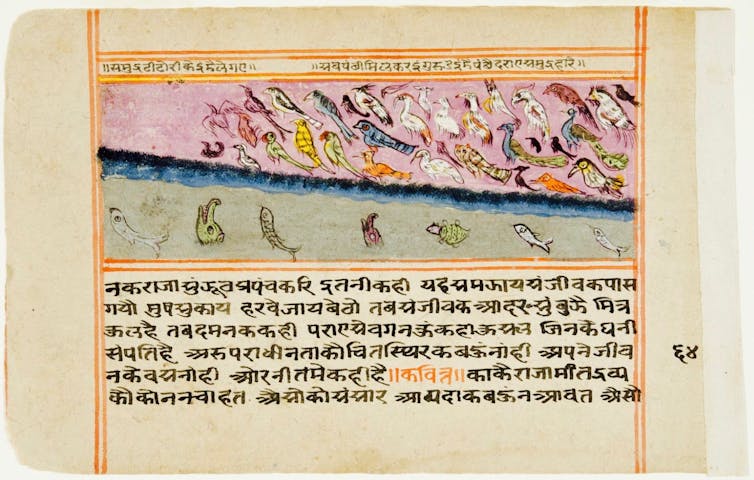 ॥समुद्रटीटोरीकेइंमेलेगए॥ ॥अबपंषीमिलकरइंगरूडपैपंचैदराएसमुद्रहारि॥
नकराजासुंजूवप्रपंचकरि इतनीकही यहसमझायसंजीवकपास
गयौ मुषसुकाय हरवेजायबेठो तबसंजीवकआदरसुंबुझै मित्र
कुसलहै तबदमनककही पराएसेवगनऊंकहाकुसल जिनकेधनी
संपतिहै अरुपराधीनताकौचितस्थिरकबऊंनांही अपनेजीव
नकेवसनांही औरनीतमेकहीहै॥कवित्त॥काकैराजामीतद्रव्य
कौकोननचाहत असोकोसंसार आपदाकबऊंनआवत असो
६४